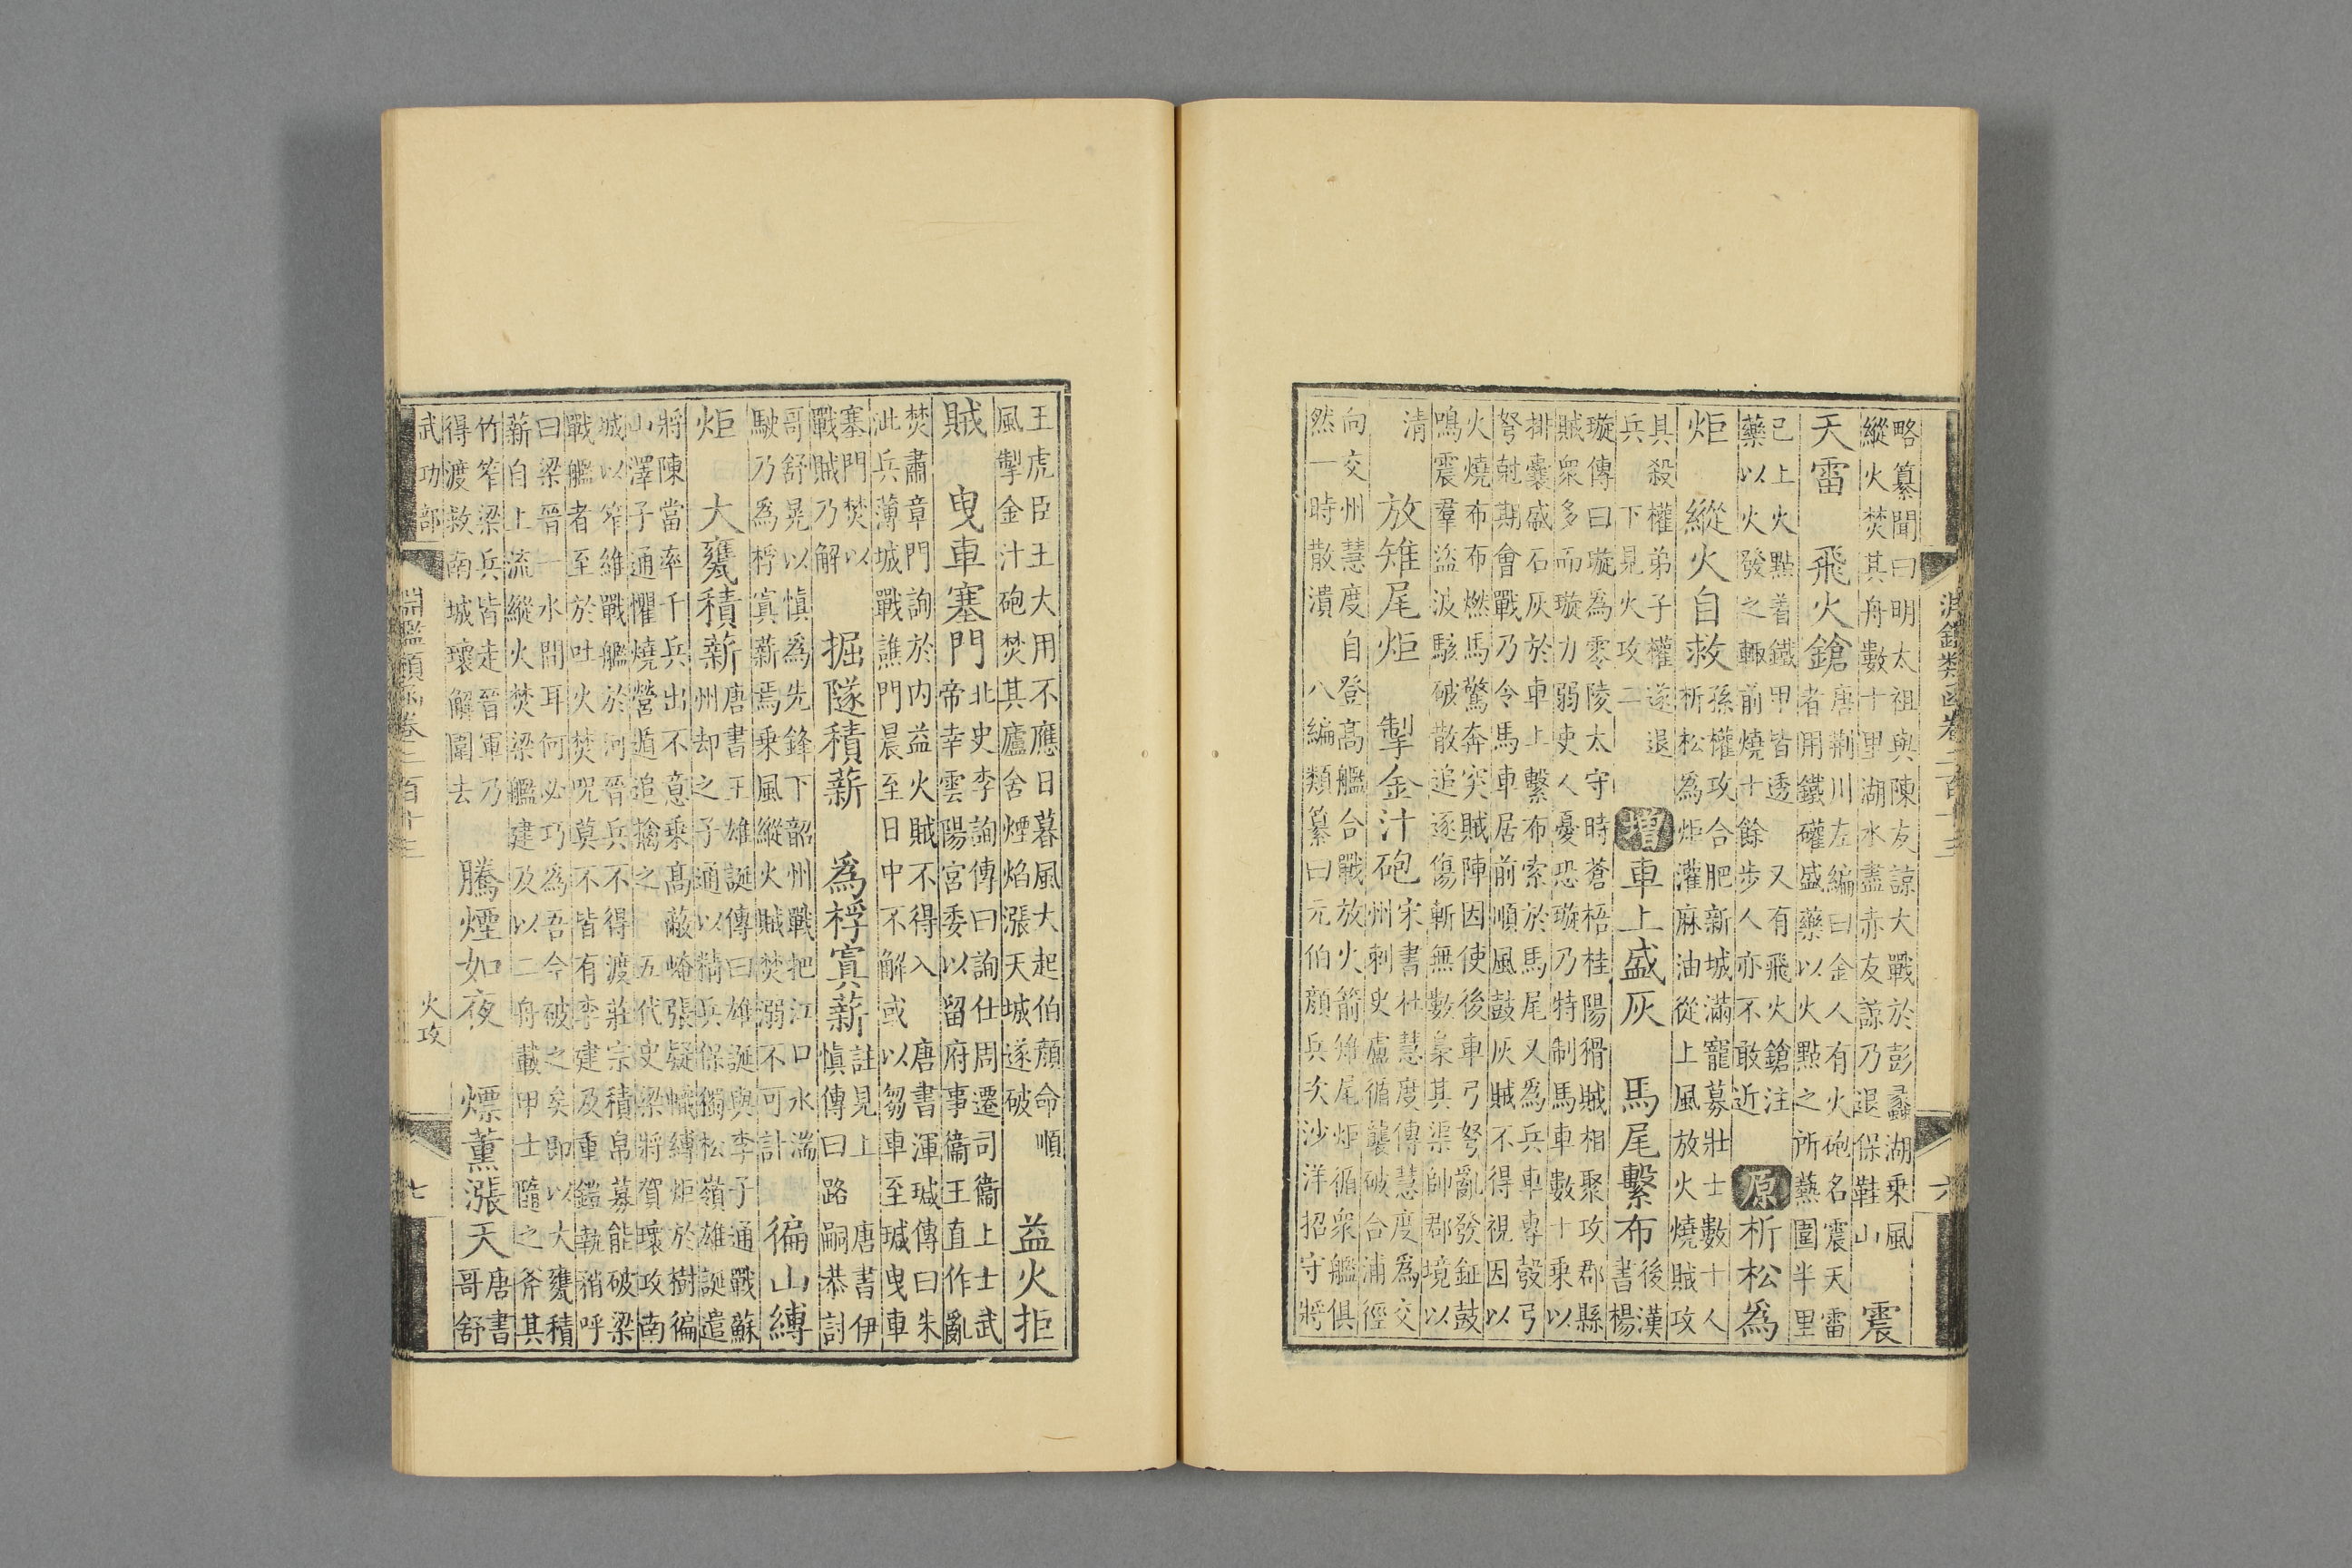 淵鑑類函卷二百十三 六
略纂聞曰明太祖與陳友諒大戰於彭蠡湖乘風
縱火焚其舟數十里湖水盡赤友諒乃退保鞋山
震
天雷 飛火鎗
唐荆川左編曰金人有火砲名震天雷
者用鐵礶盛藥以火點之所爇圍半里
已上火點着鐵甲皆透又有飛火鎗注
藥以火發之輙前燒十餘步人亦不敢近
原 析松為
炬 縱火自救
孫權攻合肥新城滿寵募壯士數十人
析松為炬灌麻油從上風放火燒賊攻
其殺權弟子權遂退
兵下見火攻二
增 車上盛灰 馬尾繫布
後漢
書楊
璇傳曰璇為零陵太守時蒼梧桂陽猾賊相聚攻郡縣
賊衆多而璇力弱吏人憂恐璇乃特制馬車數十乘以
排囊盛石灰於車上繫布索於馬尾又為兵車專彀弓
弩尅期會戰乃令馬車居前順風鼓灰賊不得視因以
火燒布布燃馬驚奔突賊陣因使後車弓弩亂發鉦鼓
鳴震羣盜波駭破散追逐傷斬無數梟其渠帥郡境以
清
放雉尾炬 掣金汁砲
宋書杜慧度傳慧度為交
州刺史盧循襲破合浦徑
向交州慧度自登高艦合戰放火箭雉尾炬循衆艦俱
然一時散潰 八編類纂曰元伯顔兵次沙洋招守將
王虎臣王大用不應日暮風大起伯顔命順
風掣金汁砲焚其廬舍煙焰漲天城遂破
益火拒
賊 曳車塞門
北史李詢傳曰詢仕周遷司衞上士武
帝幸雲陽宮委以留府事衞王直作亂
焚肅章門詢於内益火賊不得入 唐書渾瑊傳曰朱
泚兵薄城戰譙門晨至日中不解或以芻車至瑊曳車
塞門焚以
戰賊乃解
掘隧積薪 為桴寘薪
註見上 唐書伊
慎傳曰路嗣恭討
哥舒晃以慎為先鋒下韶州戰把江口水湍
駛乃為桴寘薪焉乗風縱火賊焚溺不可計
徧山縛
炬 大甕積薪
唐書王雄誕傳曰雄誕與李子通戰蘇
州却之子通以精兵保獨松嶺雄誕遣
將陳當率千兵出不意乘髙蔽崦張疑幟縛炬於樹徧
山澤子通懼燒營遁追擒之 五代史梁將賀瓌攻南
城以笮維戰艦於河晉兵不得渡莊宗積帛募能破梁
戰艦者至於吐火焚呪莫不皆有李建及重鎧執矟呼
曰梁晉一水間耳何必巧為吾今破之矣即以大甕積
薪自上流縱火焚梁艦建及以二舟載甲士隨之斧其
竹笮梁兵皆走晉軍乃
得渡救南城瓌解圍去
騰煙如夜 熛薰漲天
唐書
哥舒
武功部 淵鑑類函卷二百十三 火攻 七